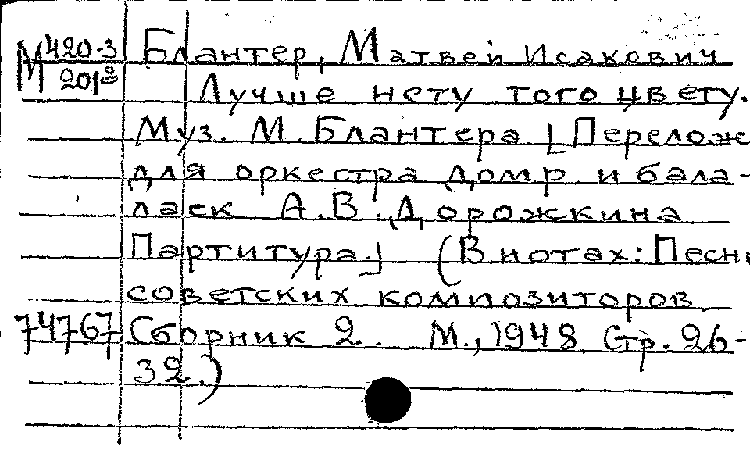 М 420-3 Блантер, Матвей Исакович
201 2 Лучше нету того цвету.
Муз. М. Блантера [Перелож
для оркестра домр и бала-
лаек А.В. Дорожкина
Партитура.] (В нотах: Песни
советских композиторов
74767 Сборник 2. М., 1948 Стр. 26-
32.)